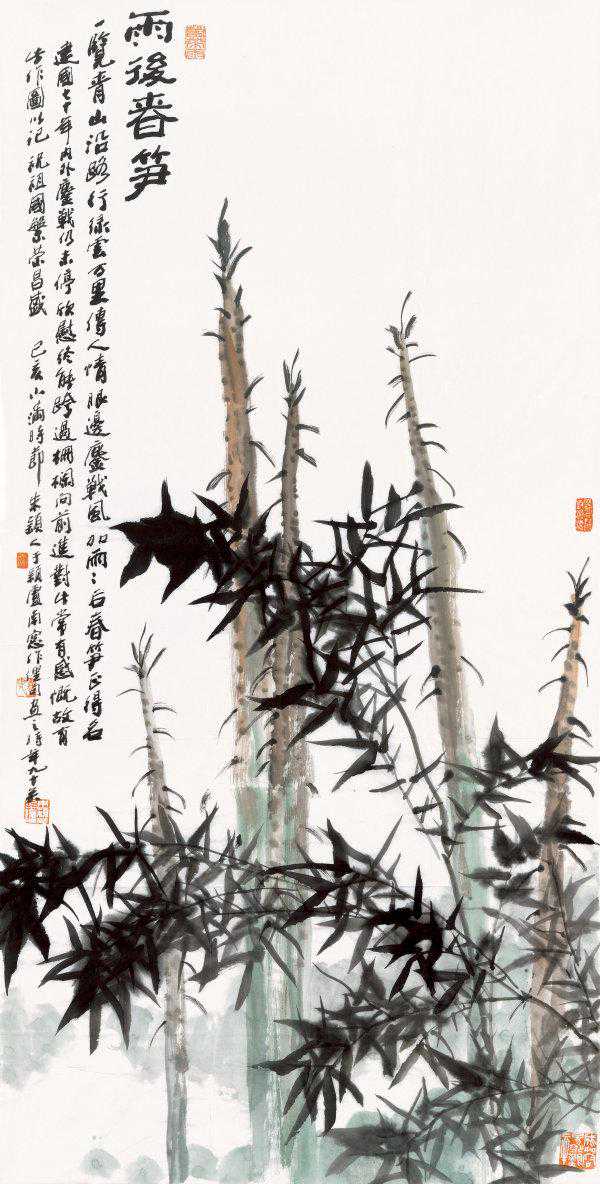 雨後春笋
一覽青山沿路行綠雲万里傳人情眼邊鏖戰風加雨〻后春笋正得名
建國七十年内外鏖戰仍未停欣慰終能跨過柵欄向前進對此常有感慨故有
此作圖以记祝祖國繁荣昌盛 己亥小满時節 朱穎人于穎廬南窗作 時年九十矣